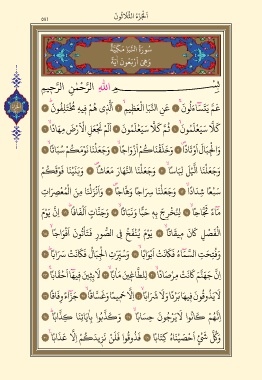 اَلْجُزْءُ الثَّلَاثُونَ
٥٨١
سُورَةُ النَّبَأِ مَكِّيَّةٌ
وَهِيَ اَرْبَعُونَ اٰيَةً
بِسْمِ اللّٰهِ الرَّحْمٰنِ الرَّحِيمِ
عَمَّ يَتَسَٓاءَلُونَ ۞ عَنِ النَّبَأِ الْعَظِيمِ ۞ اَلَّذِي هُمْ فِيهِ مُخْتَلِفُونَ ۞
كَلَّا سَيَعْلَمُونَ ۞ ثُمَّ كَلَّا سَيَعْلَمُونَ ۞ اَلَمْ نَجْعَلِ الْاَرْضَ مِهَادًا ۞
وَالْجِبَالَ اَوْتَادًا ۞ وَخَلَقْنَاكُمْ اَزْوَاجًا ۞ وَجَعَلْنَا نَوْمَكُمْ سُبَاتًا ۞
وَجَعَلْنَا الَّيْلَ لِبَاسًا ۞ وَجَعَلْنَا النَّهَارَ مَعَاشًا ۞ وَبَنَيْنَا فَوْقَكُمْ
سَبْعًا شِدَادًا ۞ وَجَعَلْنَا سِرَاجًا وَهَّاجًا ۞ وَاَنْزَلْنَا مِنَ الْمُعْصِرَاتِ
مَٓاءً ثَجَّاجًا ۞ لِنُخْرِجَ بِهِ حَبًّا وَنَبَاتًا ۞ وَجَنَّاتٍ اَلْفَافًا ۞ اِنَّ يَوْمَ
الْفَصْلِ كَانَ مِيقَاتًا ۞ يَوْمَ يُنْفَخُ فِي الصُّورِ فَتَأْتُونَ اَفْوَاجًا ۞
وَفُتِحَتِ السَّمَٓاءُ فَكَانَتْ اَبْوَابًا ۞ وَسُيِّرَتِ الْجِبَالُ فَكَانَتْ سَرَابًا ۞
اِنَّ جَهَنَّمَ كَانَتْ مِرْصَادًا ۞ لِلطَّاغِينَ مَاٰبًا ۞ لَابِثِينَ فِيهَٓا اَحْقَابًا ۞
لَا يَذُوقُونَ فِيهَا بَرْدًا وَلَا شَرَابًا ۞ اِلَّا حَمِيمًا وَغَسَّاقًا ۞ جَزَٓاءً وِفَاقًا ۞
اِنَّهُمْ كَانُوا لَا يَرْجُونَ حِسَابًا ۞ وَكَذَّبُوا بِاٰيَاتِنَا كِذَّابًا ۞
وَكُلَّ شَيْءٍ اَحْصَيْنَاهُ كِتَابًا ۞ فَذُوقُوا فَلَنْ نَزِيدَكُمْ اِلَّا عَذَابًا ۞